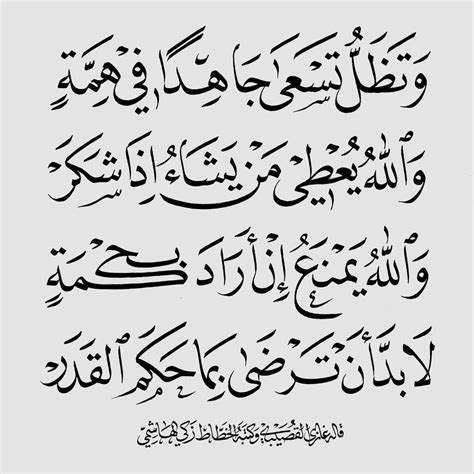 وَتَظَلُّ تَسْعَى جَاهِدًا فِي هِمَّةٍ
وَاللّٰهُ يُعْطِي مَنْ يَشَاءُ إِذَا شَكَرَ
وَاللّٰهُ يَمْنَعُ إِنْ أَرَادَ بِحِكْمَةٍ
لَا بُدَّ أَنْ تَرْضَى بِمَا حَكَمَ القَدَر
قاله غازي القصيبي وكتبه الخطاط زكي الهاشمي